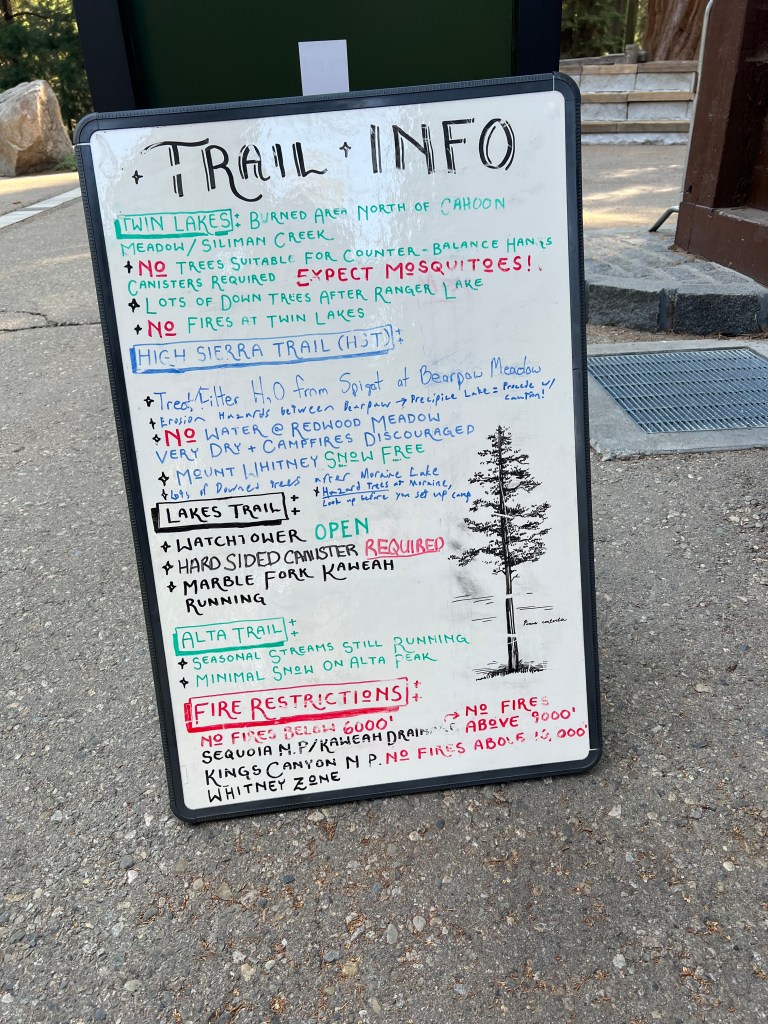 TRAIL INFO
TWIN LAKES: BURNED AREA NORTH OF CAHOON
MEADOW/SILIMAN CREEK
NO TREES SUITABLE FOR COUNTER-BALANCE HANGS
CANISTERS REQUIRED EXPECT MOSQUITOES!
LOTS OF DOWN TREES AFTER RANGER LAKE
NO FIRES AT TWIN LAKES
HIGH SIERRA TRAIL (HST)
Treat/Filter H₂O from Spigot at Bearpaw Meadow
Erosion Hazards between Bearpaw → Precipice Lake = Procede w/
caution!
NO WATER @ REDWOOD MEADOW
VERY DRY + CAMPFIRES DISCOURAGED
MOUNT WHITNEY SNOW FREE
Lots of Downed trees after Moraine Lake
Hazard Trees at Moraine,
Look up before you set up camp
LAKES TRAIL
WATCHTOWER OPEN
HARD SIDED CANISTER REQUIRED
MARBLE FORK KAWEAH
RUNNING
ALTA TRAIL
SEASONAL STREAMS STILL RUNNING
MINIMAL SNOW ON ALTA PEAK
FIRE RESTRICTIONS
NO FIRES BELOW 6000'
SEQUOIA N.P/KAWEAH DRAINAGE → NO FIRES
ABOVE 9000'
KINGS CANYON N.P. NO FIRES ABOVE 10,000'
WHITNEY ZONE